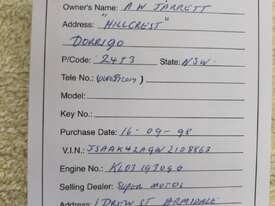 Owner's Name: A W JARRETT
Address: "HILLCREST"
DORRIGO
P/Code: 2453 State: NSW.
Tele No.:
Model:
Key No.:
Purchase Date: 16-09-98
V.I.N.:
Engine No.:
Selling Dealer: MOTOS
Address: 1 DREW ST ARMIDALE